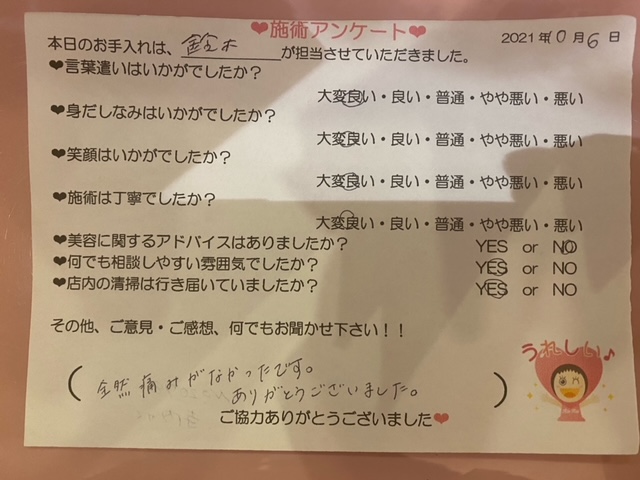 ❤施術アンケート❤
2021年10月6日
本日のお手入れは、鈴木が担当させていただきました。
❤言葉遣いはいかがでしたか？
大変良い・良い・普通・やや悪い・悪い
❤身だしなみはいかがでしたか？
大変良い・良い・普通・やや悪い・悪い
❤笑顔はいかがでしたか？
大変良い・良い・普通・やや悪い・悪い
❤施術は丁寧でしたか？
大変良い・良い・普通・やや悪い・悪い
❤美容に関するアドバイスはありましたか？ YES or NO
❤何でも相談しやすい雰囲気でしたか？ YES or NO
❤店内の清掃は行き届いていましたか？ YES or NO
その他、ご意見・ご感想、何でもお聞かせ下さい！！
うれしい♪
（全然痛みがなかったです。
ありがとうございました。）
ご協力ありがとうございました❤